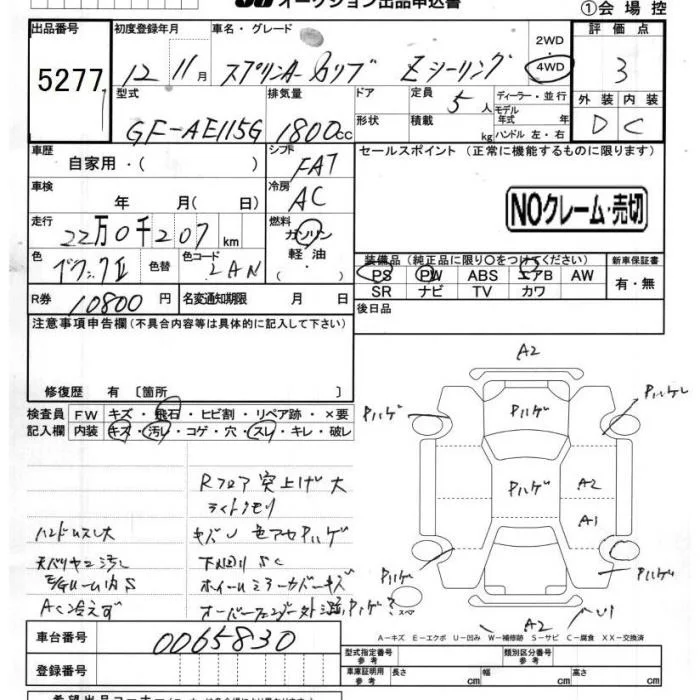 オークション出品申込書
①会場控
出品番号 初度登録年月 車名・グレード 2WD 評価点
5277 12 11月 スプリンA-カリブ Zシーリング 4WD 3
型式 排気量 ドア 定員 5人 ディーラー・並行 外装 内装
GF-AE115G 1800cc 形状 積載 kg モデル年式 年式 ハンドル 左・右 D C
車歴 シフト セールスポイント (正常に機能するものに限ります)
自家用・( ) FAT
車検 冷房
年 月( 日) AC NOクレーム・売切
走行 燃料
22万0千207km ガソリン
色 色替 色コード 軽油 装備品 (純正品に限り○をつけてください) 新車保証書
2AN ( ) PS PW ABS エアB AW 有・無
R券 10800円 名変通知期限 月 日 SR ナビ TV カワ
注意事項申告欄(不具合内容等は具体的に記入して下さい) 後日品
修復歴 有 [箇所 ]
検査員 FW キズ・飛石・ヒビ割・リペア跡・×要
記入欄 内装 キズ・汚レ・コゲ・穴・スレ・キレ・破レ
A2
Pハゲ Pハゲ Pハゲ
Rフロア突上げ大
ライトクモリ Pハゲ A2
A1
ハンドルスレ大 キズU 色アセPハゲ
天バリヤニ汚レ 下回りSC
E/Gルーム内S ホイールミラーカバーキズ Pハゲ Pハゲ
AC冷えず オーバーフェンダー外 Pハゲ スペア A2 U1
車台番号 0065830 A－キズ E－エクボ U－凹み W－補修跡 S－サビ C－腐食 XX－交換済
登録番号 型式指定番号 参考 類別区分番号 参考
車庫証明用 参考 長さ cm 幅 cm 高さ cm